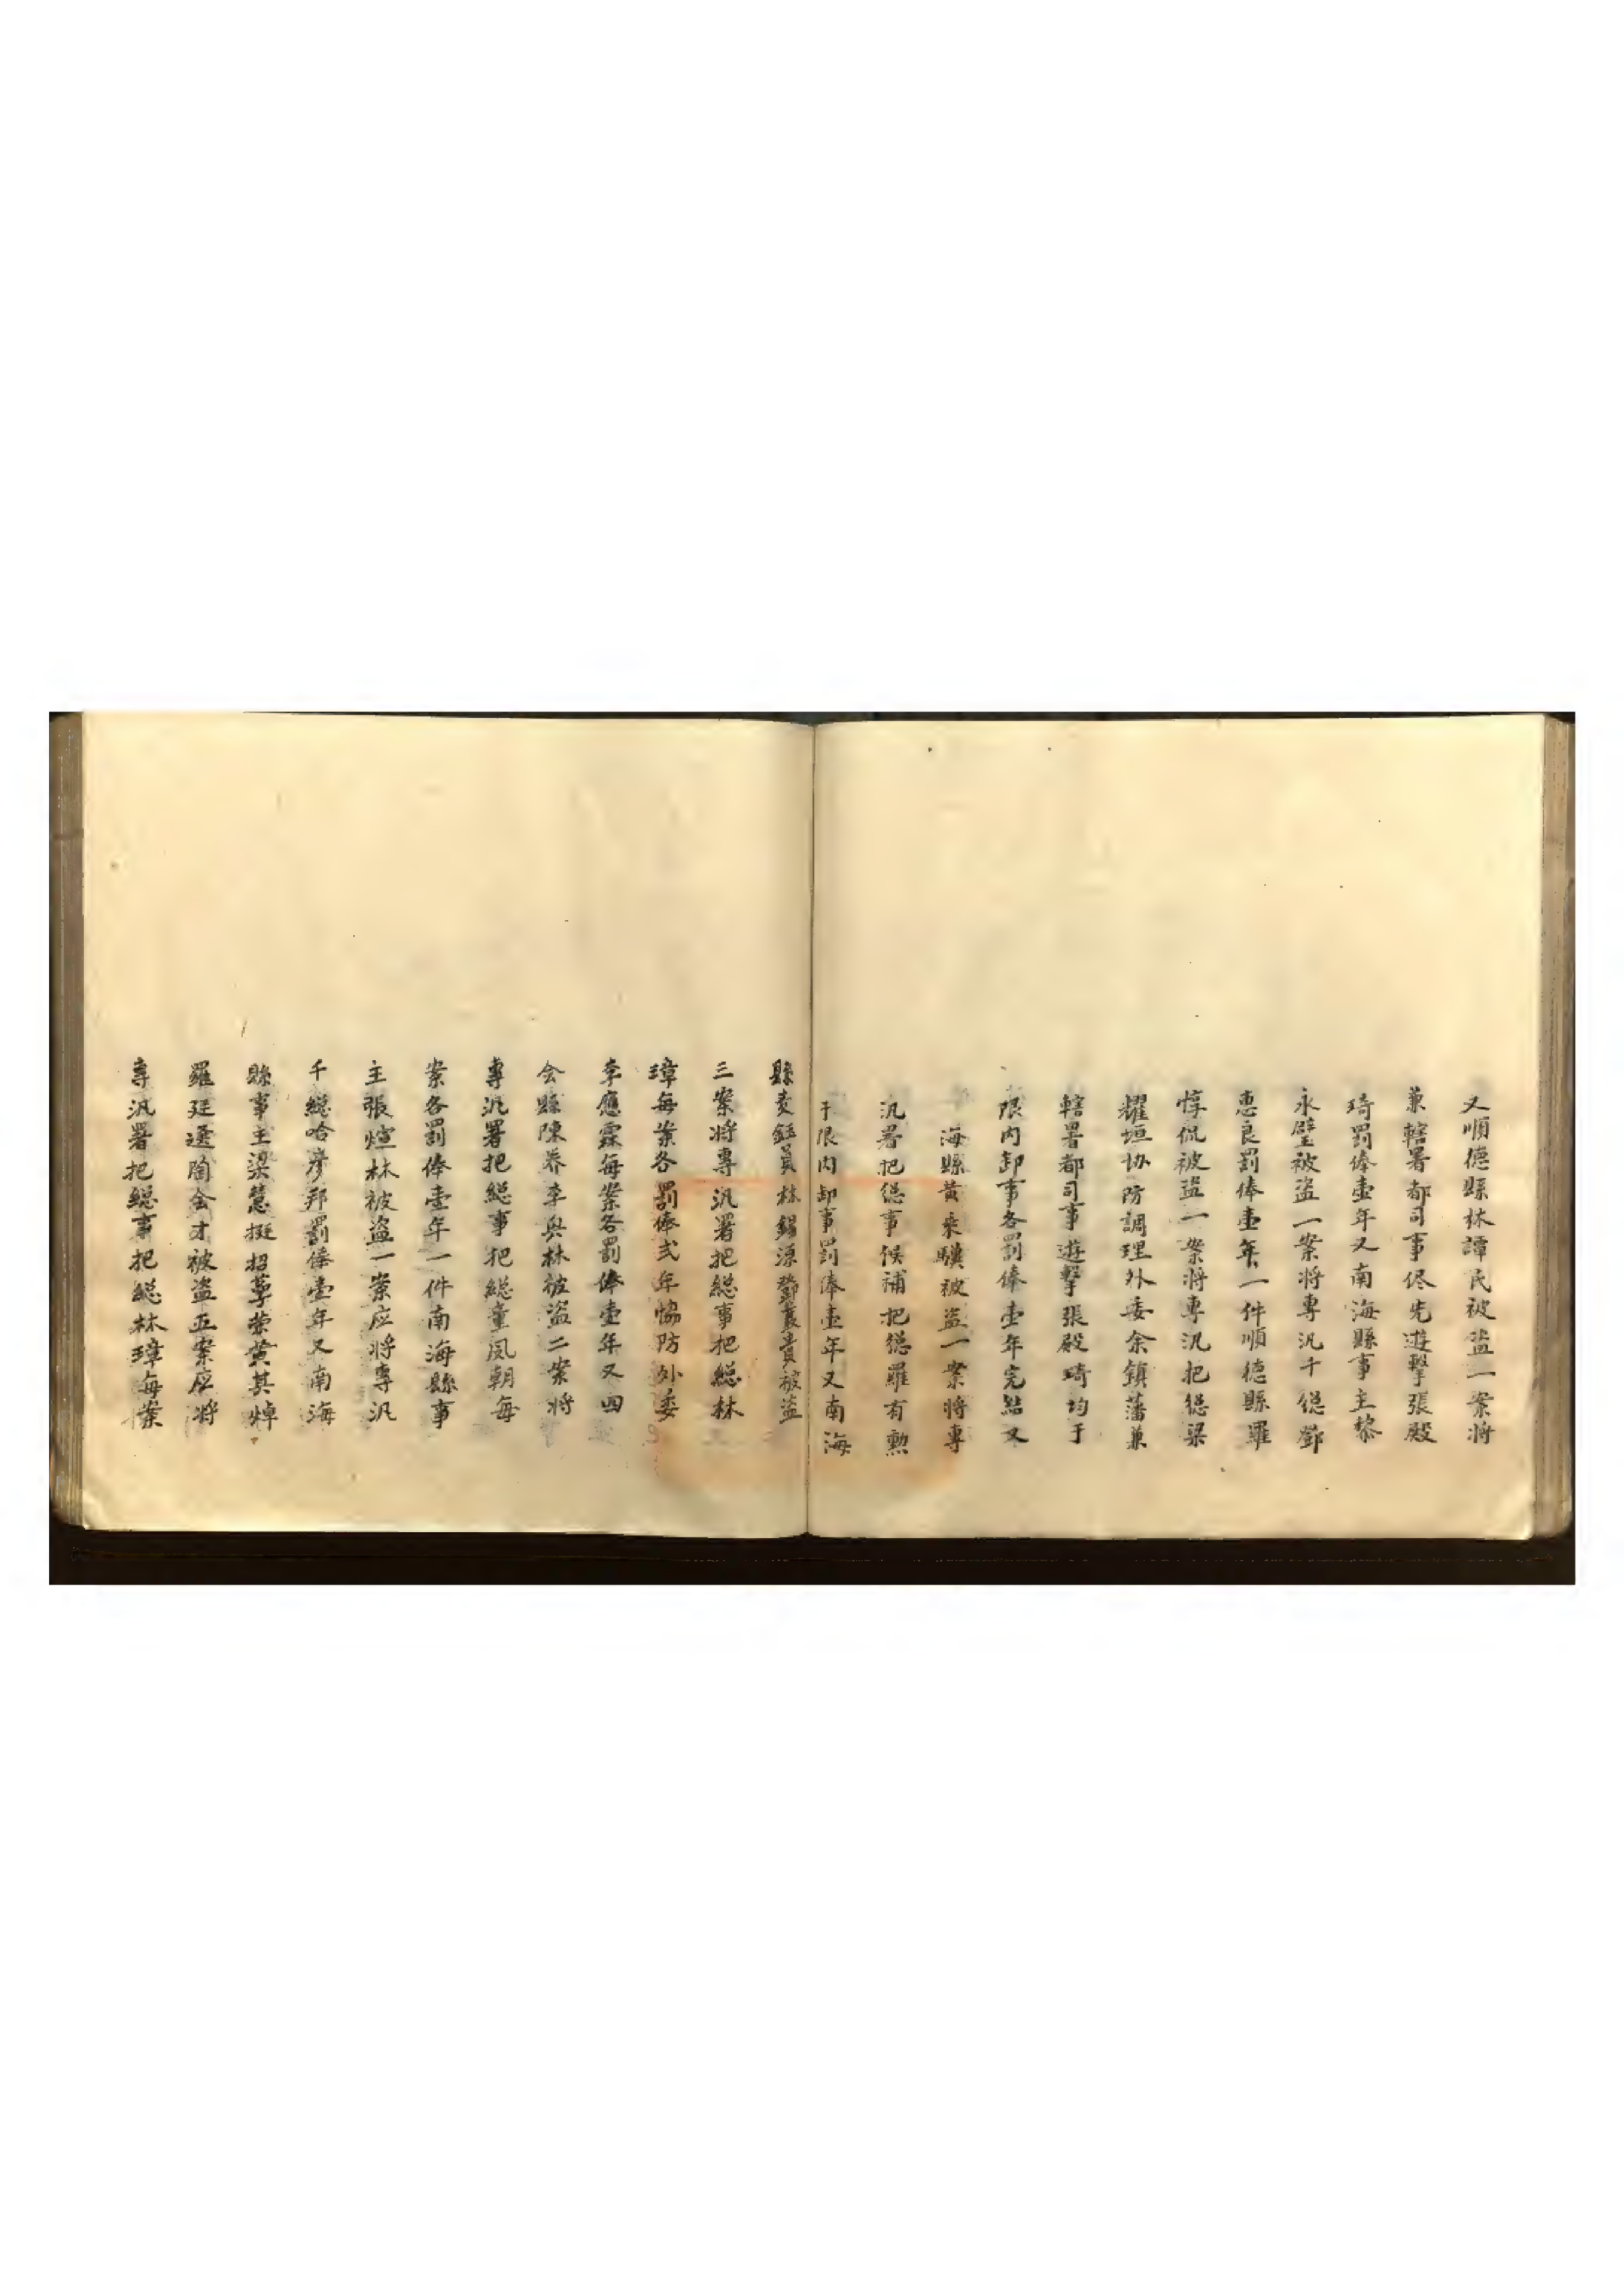 又順德縣林譚民被盜一案將
兼轄署都司事侭先遊擊張殿
琦罰俸壹年又南海縣事主黎
永璧被盜一案將專汛千總鄧
惠良罰俸壹年一件順德縣羅
惇侃被盜一案將專汛把總梁
耀垣协防調理外委余鎮藩兼
轄署都司事遊擊張殿琦均于
限内卸事各罰俸壹年完結又
海縣黃乘驥被盜一案將專
汛署把總事候補把總羅有勲
于限内卸事罰俸壹年又南海
縣麦鈺員林錫源鄧叢貴被盜
三案將專汛署把總事把總林
璋每案各罰俸弍年恊防外委
李應霖每案各罰俸壹年又四
会縣陳养李與林被盜二案將
專汛署把總事把總童凤朝每
案各罰俸壹年一件南海縣事
主張煊林被盜一案应將專汛
千總哈彦邦罰俸壹年又南海
縣事主梁慧挺招蕚荣黃其焯
羅廷遜陶会才被盜五案应將
專汛署把總事把總林璋每案